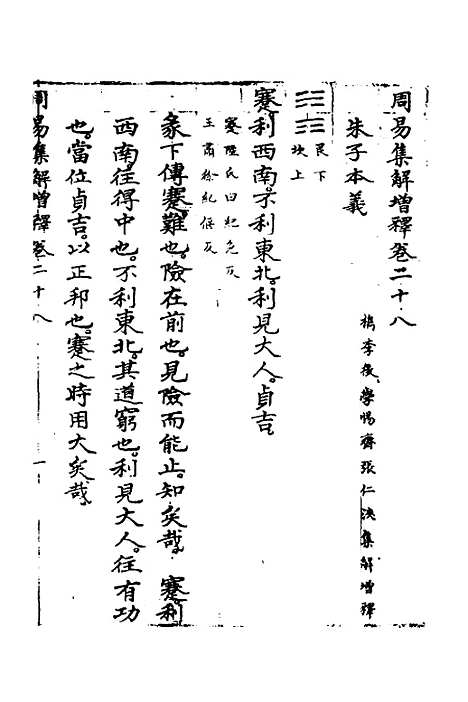 周易集解增釋卷二十八
朱子本義
檇李後學惕齋張仁浹集解增釋
艮下
坎上
蹇利西南不利東北利見大人貞吉
蹇陸氏曰紀免反
王肅徐紀偃反
彖下傳蹇難也險在前也見險而能止知矣哉 蹇利
西南往得中也不利東北其道窮也利見大人往有功
也當位貞吉以正邦也蹇之時用大矣哉
周易集解增釋卷二十八 一